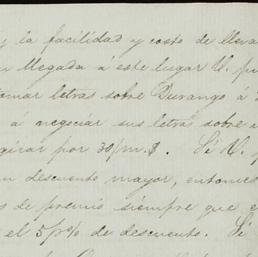 y la facilidad y costo de lleva
llegada á este lugar U. pu
tomar letras sobre Durango á
á negociar sus letras sobre
girar por 30 p/m $. Si U.
un descuento mayor, entonces
s de premio siempre que e
el 5 p% de descuento. Si